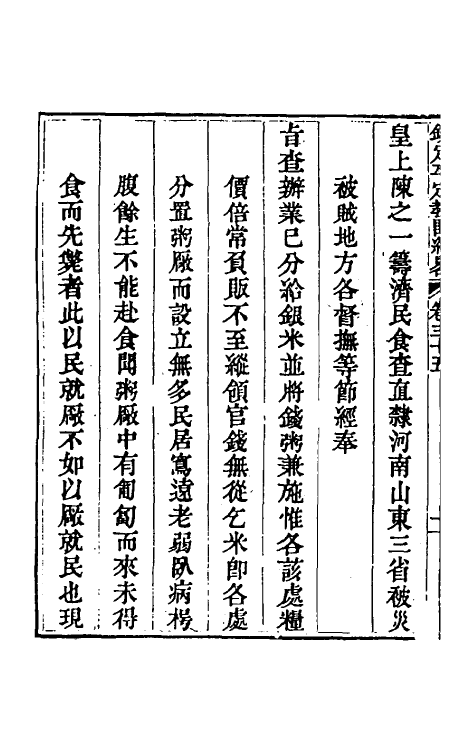 欽定平定教匪紀略 卷三十五
皇上陳之一籌濟民食查直隸河南山東三省被災
被賊地方各督撫等節經奉
旨查辦業已分給銀米並將錢粥兼施惟各該處糧
價倍常負販不至縱領官錢無從乞米即各處
分置粥廠而設立無多民居寫遠老弱臥病枵
腹餘生不能赴食聞粥廠中有匍匐而來未得
食而先斃者此以民就廠不如以廠就民也現